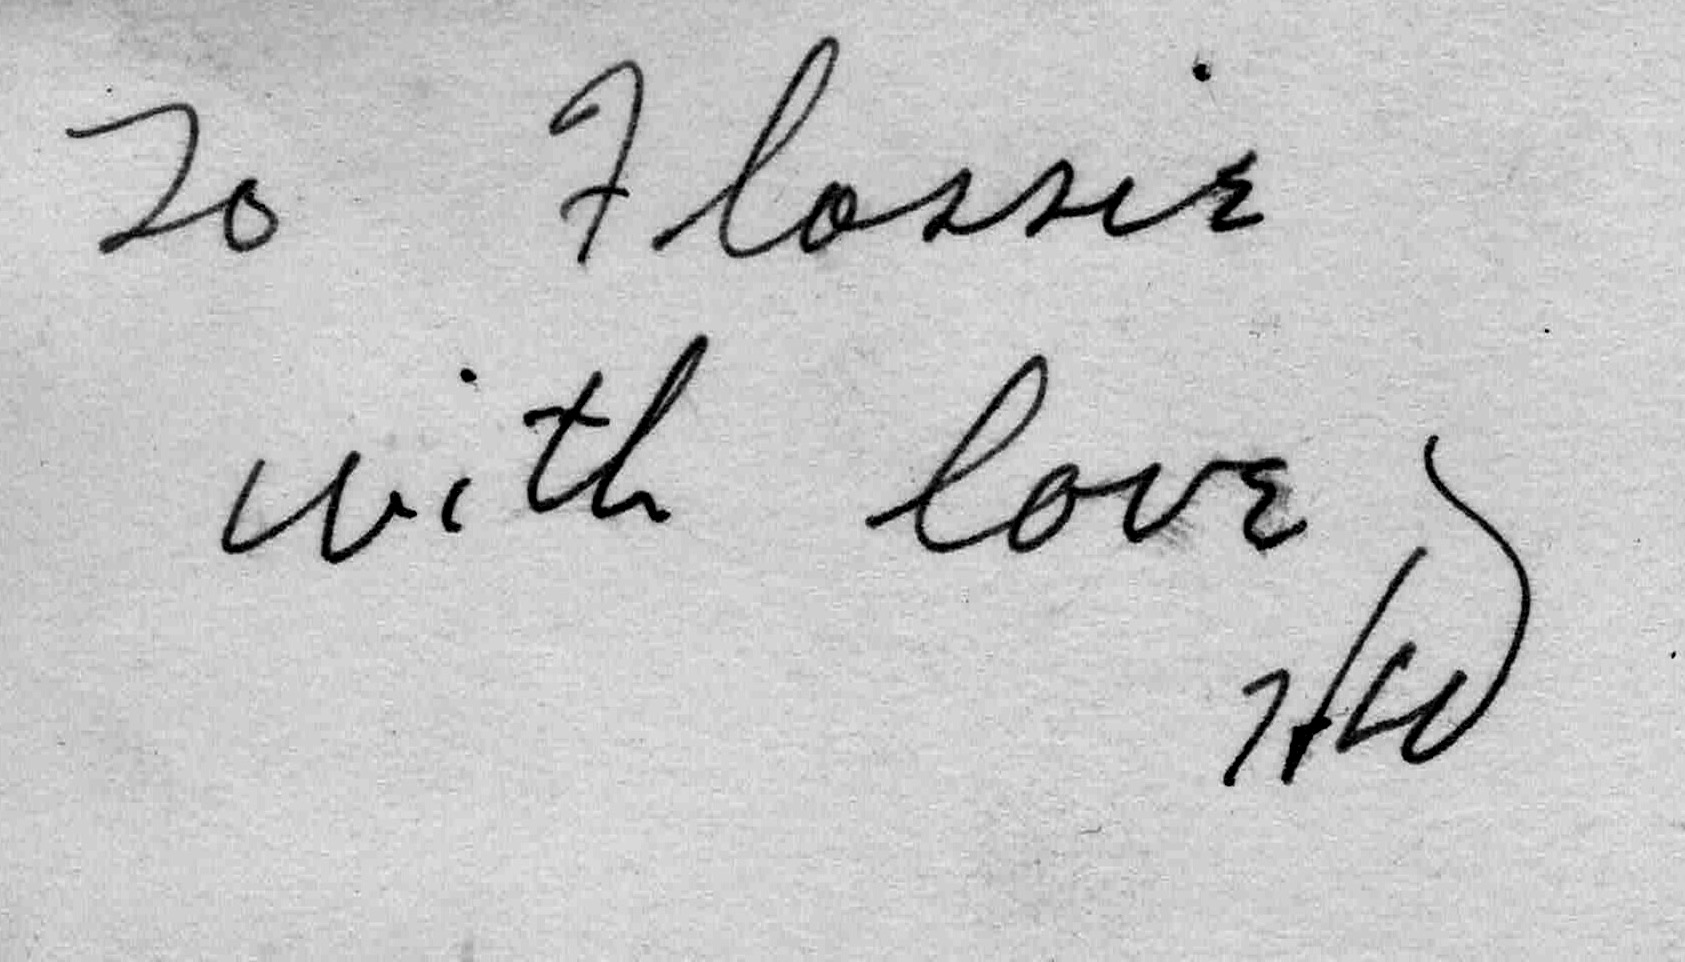 To Flossie
with love